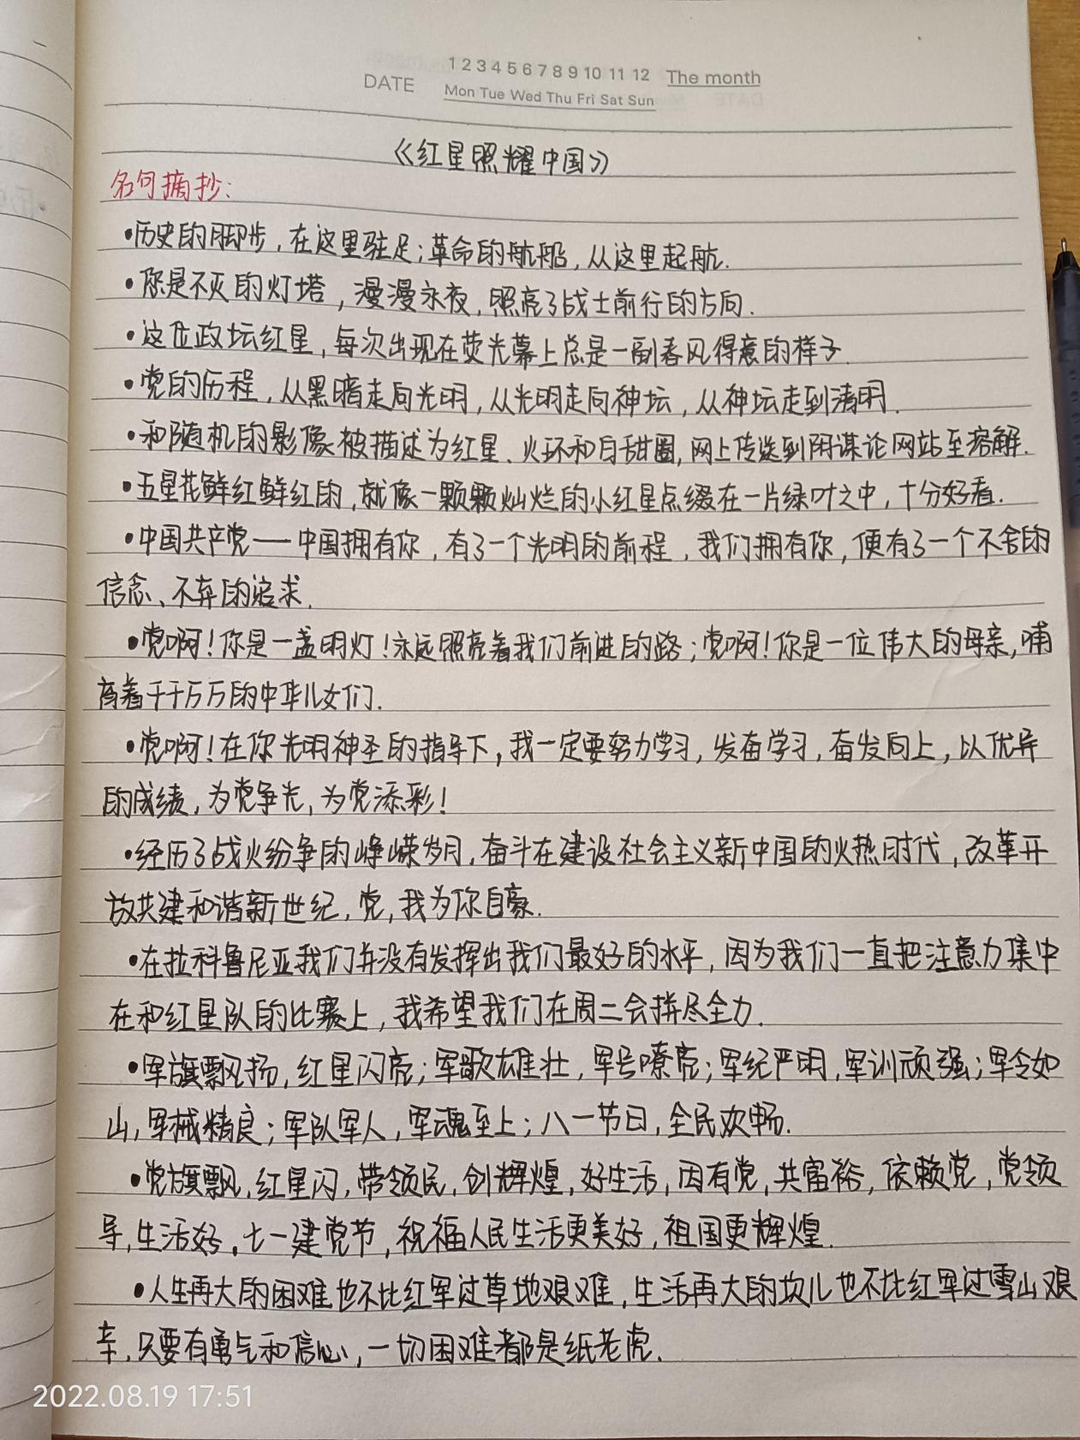 1 2 3 4 5 6 7 8 9 10 11 12 The month
DATE
Mon Tue Wed Thu Fri Sat Sun
《红星照耀中国》
名句摘抄:
•历史的脚步,在这里驻足;革命的航船,从这里起航.
•你是不灭的灯塔,漫漫永夜,照亮了战士前行的方向.
•这位政坛红星,每次出现在荧光幕上总是一副春风得意的样子.
•党的历程,从黑暗走向光明,从光明走向神坛,从神坛走到清明.
•和随机的影像被描述为红星、火环和自甜圈,网上传送到阴谋论网站至溶解.
•五星花鲜红鲜红的,就像一颗颗灿烂的小红星点缀在一片绿叶之中,十分好看.
•中国共产党——中国拥有你,有了一个光明的前程,我们拥有你,便有了一个不舍的
信念、不弃的追求.
•党啊!你是一盏明灯!永远照亮着我们前进的路;党啊!你是一位伟大的母亲,哺
育着千千万万的中华儿女们.
•党啊!在你光明神圣的指导下,我一定要努力学习,发奋学习,奋发向上,以优异
的成绩,为党争光,为党添彩!
•经历了战火纷争的峥嵘岁月,奋斗在建设社会主义新中国的火热时代,改革开
放共建和谐新世纪,党,我为你自豪.
•在拉科鲁尼亚我们并没有发挥出我们最好的水平,因为我们一直把注意力集中
在和红星队的比赛上,我希望我们在周二会拼尽全力.
•军旗飘扬,红星闪亮;军歌雄壮,军号嘹亮;军纪严明,军训顽强;军令如
山,军械精良;军队军人,军魂至上;八一节日,全民欢畅.
•党旗飘,红星闪,带领民,创辉煌,好生活,因有党,共富裕,依赖党,党领
导,生活好,七一建党节,祝福人民生活更美好,祖国更辉煌.
•人生再大的困难也不比红军过草地艰难,生活再大的坎儿也不比红军过雪山艰
辛,只要有勇气和信心,一切困难都是纸老虎.
2022.08.19 17:51